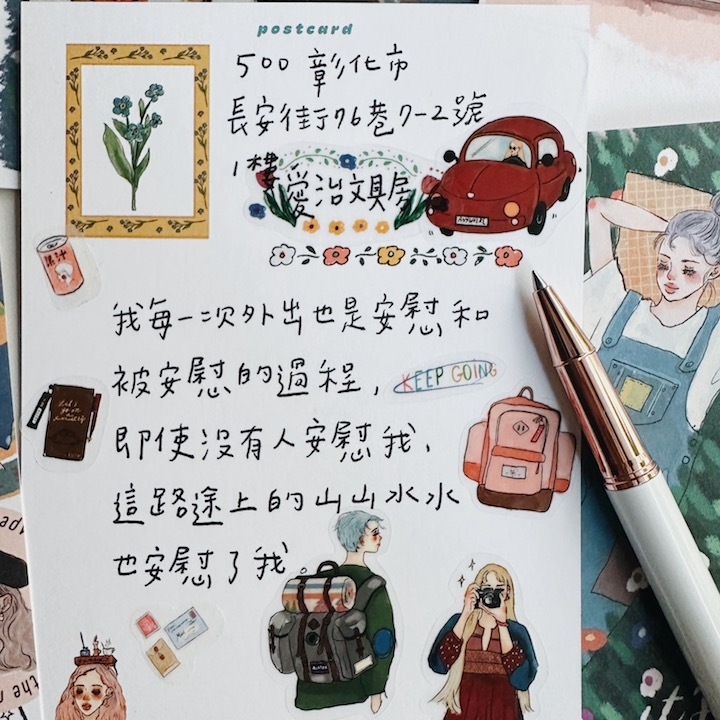 postcard
500 彰化市
長安街76巷7-2號
1樓
愛治文具房
果汁
我每一次外出也是安慰和
被安慰的過程，
KEEP GOING
即使沒有人安慰我，
這路途上的山山水水
也安慰了我。